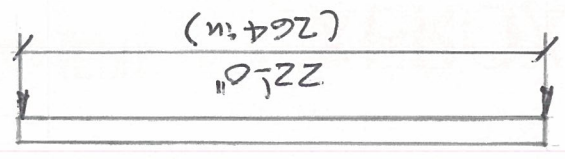 22'-0"
(264 in)